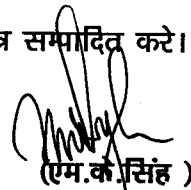 सम्पादित करे।
(एम.के.सिंह )